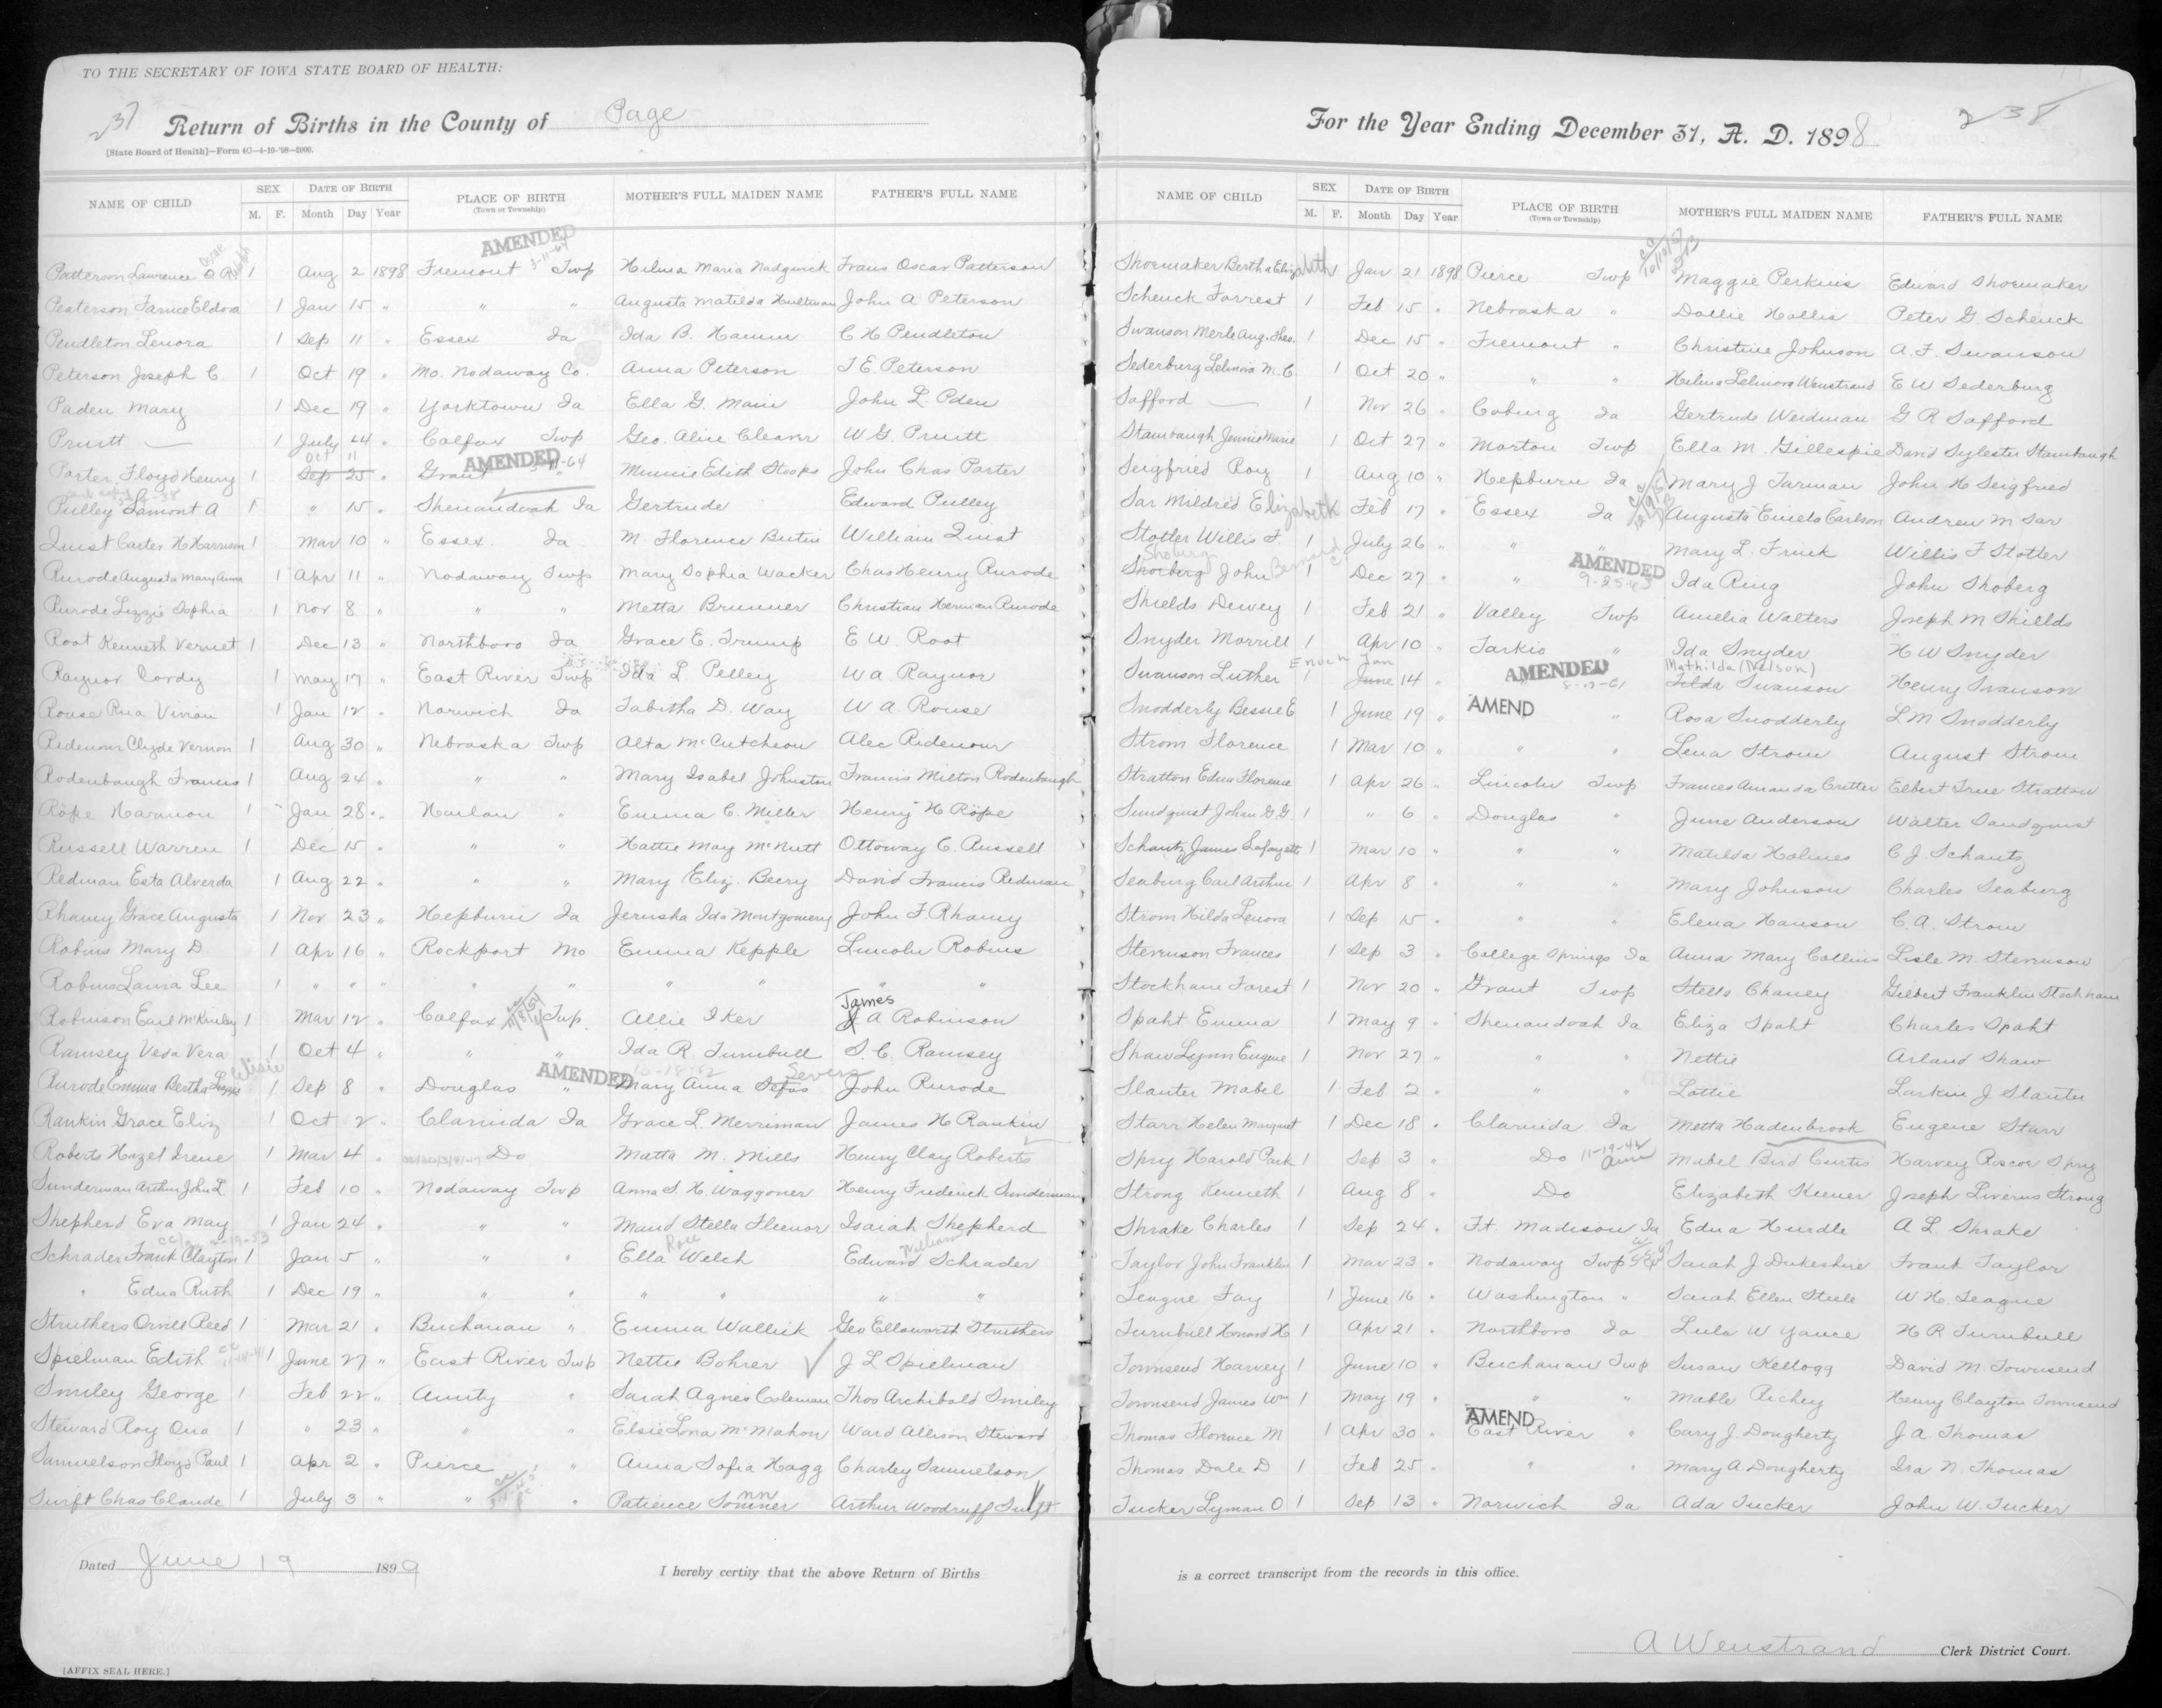 TO THE SECRETARY OF IOWA STATE BOARD OF HEALTH:
237 Return of Births in the County of Page
[State Board of Health]—Form 40—4-10-'98—2000.
NAME OF CHILD SEX M. F. DATE OF BIRTH Month Day Year PLACE OF BIRTH (Town or Township) MOTHER'S FULL MAIDEN NAME FATHER'S FULL NAME
AMENDED 3-11-64
Patterson Lawrence O. R Oscar 1 Aug 2 1898 Fremont Twp Hilma Maria Frans Oscar Patterson
Peaterson Eldora 1 Jan 15 " " " Augusta Matilda Hultman John A Peterson
Pendleton Lenora 1 Sep 11 " Essex Ia Ida B. Hamm C H Pendleton
Peterson Joseph C. 1 Oct 19 " Mo. Nodaway Co. Anna Peterson J E. Peterson
Paden Mary 1 Dec 19 " Yorktown Ia Ella G. Main John L. Pden
Pruitt — 1 July 24 " Colfax Twp Geo. Alice Cleaver W G. Pruitt
Porter Floyd Henry 1 Sep 25 Oct 11 " Grant " AMENDED 64 Minnie Edith Stoops John Chas Porter
Pulley Lamont A 1 " 15 " Shenandoah Ia Gertrude Edward Pulley
Quist Carter H Harrison 1 Mar 10 " Essex Ia M. Florence Butin William Quist
Rurode Augusta Mary Anna 1 Apr 11 " Nodaway Twp Mary Sophia Wacker Chas Henry Rurode
Rurode Lizzie Sophia 1 Nov 8 " " " Metta Brunner Christian Herman Rurode
Root Kenneth Vernet 1 Dec 13 " Northboro Ia Grace E. Trump E W. Root
Raynor Cordy 1 May 17 " East River Twp Ida L. Pelley W A Raynor
Rouse Rua Vivian 1 Jan 12 " Norwich Ia Tabitha D. Way W A. Rouse
Ridenour Clyde Vernon 1 Aug 30 " Nebraska Twp Alta McCutcheon Alec Ridenour
Rodenbaugh Francis 1 Aug 24 " " " Mary Isabel Johnston Francis Milton Rodenbaugh
Röpe Harmon 1 Jan 28 " Harlan " Emma C. Miller Henry H Röpe
Russell Warren 1 Dec 15 " " " Hattie May McNutt Ottoway C. Russell
Redman Esta Alverda 1 Aug 22 " " " Mary Eliz. Beery David Francis Redman
Rhamy Grace Augusta 1 Nov 23 " Hepburn Ia Jerusha Ida Montgomery John F. Rhamy
Robins Mary D. 1 Apr 16 " Rockport Mo Emma Kepple Lincoln Robins
Robins Laura Lee 1 " " " " " " " "
Robinson Earl McKinley 1 Mar 12 " Colfax Twp. Allie Iker James J A Robinson
Ramsey Veda Vera 1 Oct 4 " " " Ida R. Turnbull S. C. Ramsey
Rurode Emma Bertha Lizzie Elisie 1 Sep 8 " Douglas " AMENDED 10-18-62 Mary Anna Sefus Severs John Rurode
Rankin Grace Eliz 1 Oct 2 " Clarinda Ia Grace L. Merriman James H Rankin
Roberts Hazel Irene 1 Mar 4 " Do Matta M. Mills Henry Clay Roberts
Sunderman Arthur John L 1 Feb 10 " Nodaway Twp Anna S. H. Waggoner Henry Frederick Sunderman
Shepherd Eva May 1 Jan 24 " " " Maud Stella Fleenor Isaiah Shepherd
Schrader Frank Clayton 1 Jan 5 " " " Ella Rose Welch Edward William Schrader
" Edna Ruth 1 Dec 19 " " " " " " "
Struthers Orvill Reed 1 Mar 21 " Buchanan " Emma Wallick Geo Ellsworth Struthers
Spielman Edith 1 June 27 " East River Twp Nettie Bohrer J L Spielman
Smiley George 1 Feb 22 " Amity " Sarah Agnes Coleman Thos Archibald Smiley
Steward Roy Ora 1 " 23 " " " Elsie Lona McMahon Ward Allison Steward
Samuelson Floyd Paul 1 Apr 2 " Pierce " Anna Sofia Hagg Charley Samuelson
Swift Chas Claude 1 July 3 " " " Patience Sommer nn Arthur Woodruff Swift
Dated June 19 1899 I hereby certify that the above Return of Births
[AFFIX SEAL HERE.]
For the Year Ending December 31, A. D. 1898 238
NAME OF CHILD SEX M. F. DATE OF BIRTH Month Day Year PLACE OF BIRTH (Town or Township) MOTHER'S FULL MAIDEN NAME FATHER'S FULL NAME
Shoemaker Bertha Elizabeth 1 Jan 21 1898 Pierce Twp Maggie Perkins Edward Shoemaker
Schenck Forrest 1 Feb 15 " Nebraska " Dollie Hollis Peter G. Schenck
Swanson Merle Aug. Theo. 1 Dec 15 " Fremont " Christine Johnson A. F. Swanson
Sederburg Lelinora M. C. 1 Oct 20 " " " Hilma Lelinora Wenstrand E W Sederburg
Safford — 1 Nov 26 " Coburg Ia Gertrude Weidman G R Safford
Stambaugh Jennie Marie 1 Oct 27 " Morton Twp Ella M. Gillespie David Sylester Stambaugh
Seigfried Roy 1 Aug 10 " Hepburn Ia Mary J Tarman John H Seigfried
Sar Mildred Elizabeth Feb 17 " Essex Ia Augusta Carlson Andrew M Sar
Stotler Willis F. 1 July 26 " " " Mary L. Frink Willis F Stotler
Shoeberg Shoberg John Bernard 1 Dec 27 " " AMENDED 9-25-63 Ida Ring John Shoberg
Shields Dewey 1 Feb 21 " Valley Twp Amelia Walters Joseph M Shields
Snyder Morrill 1 Apr 10 " Tarkio " Ida Snyder H W Snyder
Swanson Luther Enoch 1 June Jan 14 " AMENDED Tilda Mathilda (Nelson) Swanson Henry Swanson
Snodderly Bessie E 1 June 19 " AMEND " Rosa Snodderly L M Snodderly
Strom Florence 1 Mar 10 " " " Lena Strom August Strom
Stratton Edna Florence 1 Apr 26 " Lincoln Twp Frances Amanda Critter Elbert True Stratton
Sundquist Johan G. G. 1 " 6 " Douglas " June Anderson Walter Sandquist
Schantz James Lafayette 1 Mar 10 " " " Matilda Holmes C J Schantz
Seaburg Carl Arthur 1 Apr 8 " " " Mary Johnson Charles Seaburg
Strom Hilda Lenora 1 Sep 15 " " " Elena Hanson C. A. Strom
Stevenson Frances 1 Sep 3 " College Springs Ia Anna Mary Collins Lisle M. Stevenson
Stockham Forest 1 Nov 20 " Grant Twp Stella Chaney Gilbert Franklin Stockham
Spaht Emma 1 May 9 " Shenandoah Ia Eliza Spaht Charles Spaht
Shaw Lynn Eugene 1 Nov 27 " " " Nettie Arland Shaw
Slanter Mabel 1 Feb 2 " " " Lottie Larkin J Slanter
Starr Helen Margaret 1 Dec 18 " Clarinda Ia Metta Hadenbrook Eugene Starr
Spry Harold Park 1 Sep 3 " Do Mabel Bird Curtis Harvey Roscoe Spry
Strong Kenneth 1 Aug 8 " Do Elizabeth Keener Joseph Liverus Strong
Shrake Charles 1 Sep 24 " Ft. Madison Ia Edna Hurdle A L. Shrake
Taylor John Franklin 1 Mar 23 " Nodaway Twp Sarah J Dukeshire Frank Taylor
Teague Fay 1 June 16 " Washington " Sarah Ellen Steele W H. Teague
Turnbull Howard H 1 Apr 21 " Northboro Ia Lula W Yance H R Turnbull
Townsend Harvey 1 June 10 " Buchanan Twp Susan Kellogg David M. Townsend
Townsend James Wm 1 May 19 " " " Mable Richey Henry Clayton Townsend
Thomas Florence M 1 Apr 30 " AMEND East River " Cary J. Dougherty J A Thomas
Thomas Dale D 1 Feb 25 " " " Mary A. Dougherty Ira N. Thomas
Tucker Lyman O 1 Sep 13 " Norwich Ia Ada Tucker John W. Tucker
is a correct transcript from the records in this office.
A Wenstrand Clerk District Court.